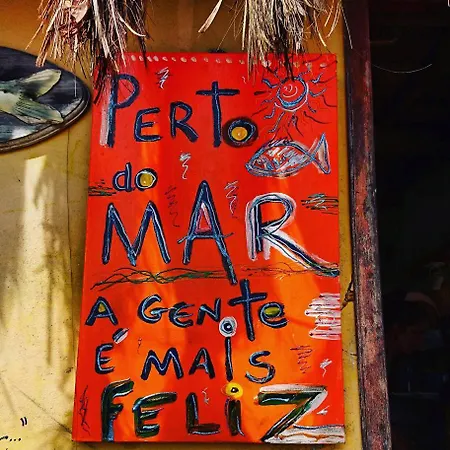 PERTO
do
MAR
A GENTE
É MAIS
FELIZ